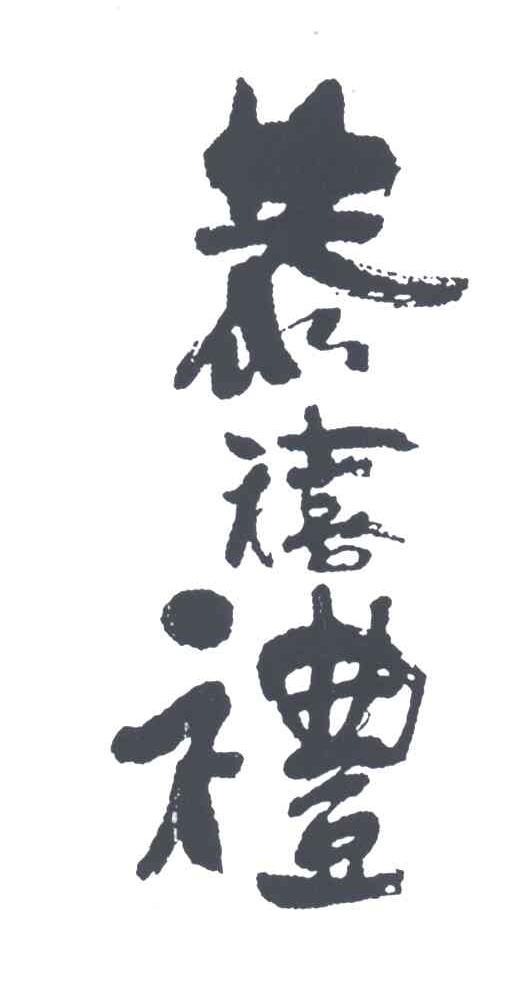 恭禧禮